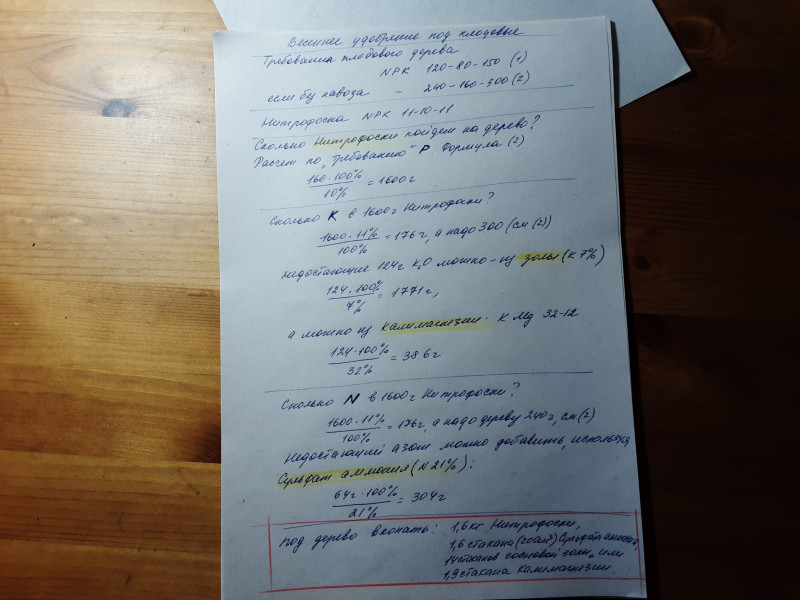 Весеннее удобрение под плодовые
Требования плодового дерева
NPK 120-80-150 (1)
если без навоза - 240-160-300 (2)
Нитрофоска NPK 11-10-11
Сколько Нитрофоски пойдет на дерево?
Расчет по "требованию" P формула (2)
160·100%
10%
= 1600г
Сколько K в 1600г Нитрофоски?
1600·11%
100%
= 176г, а надо 300 (см (2))
недостающие 124г K₂O можно - из золы (K 7%)
124·100%
7%
= 1771г,
а можно из Калимагнезии. K Mg 32-12
124·100%
32%
= 386г
Сколько N в 1600г Нитрофоски?
1600·11%
100%
= 176г, а надо дереву 240г, см (2)
Недостающий азот можно добавить, используя
Сульфат аммония (N 21%):
64г·100%
21%
= 304г
Под дерево вкопать: 1,6 кг Нитрофоски,
1,6 стакана (200мл) Сульфата аммония,
14 стаканов сосновой золы, или
1,9 стакана Калимагнезии.